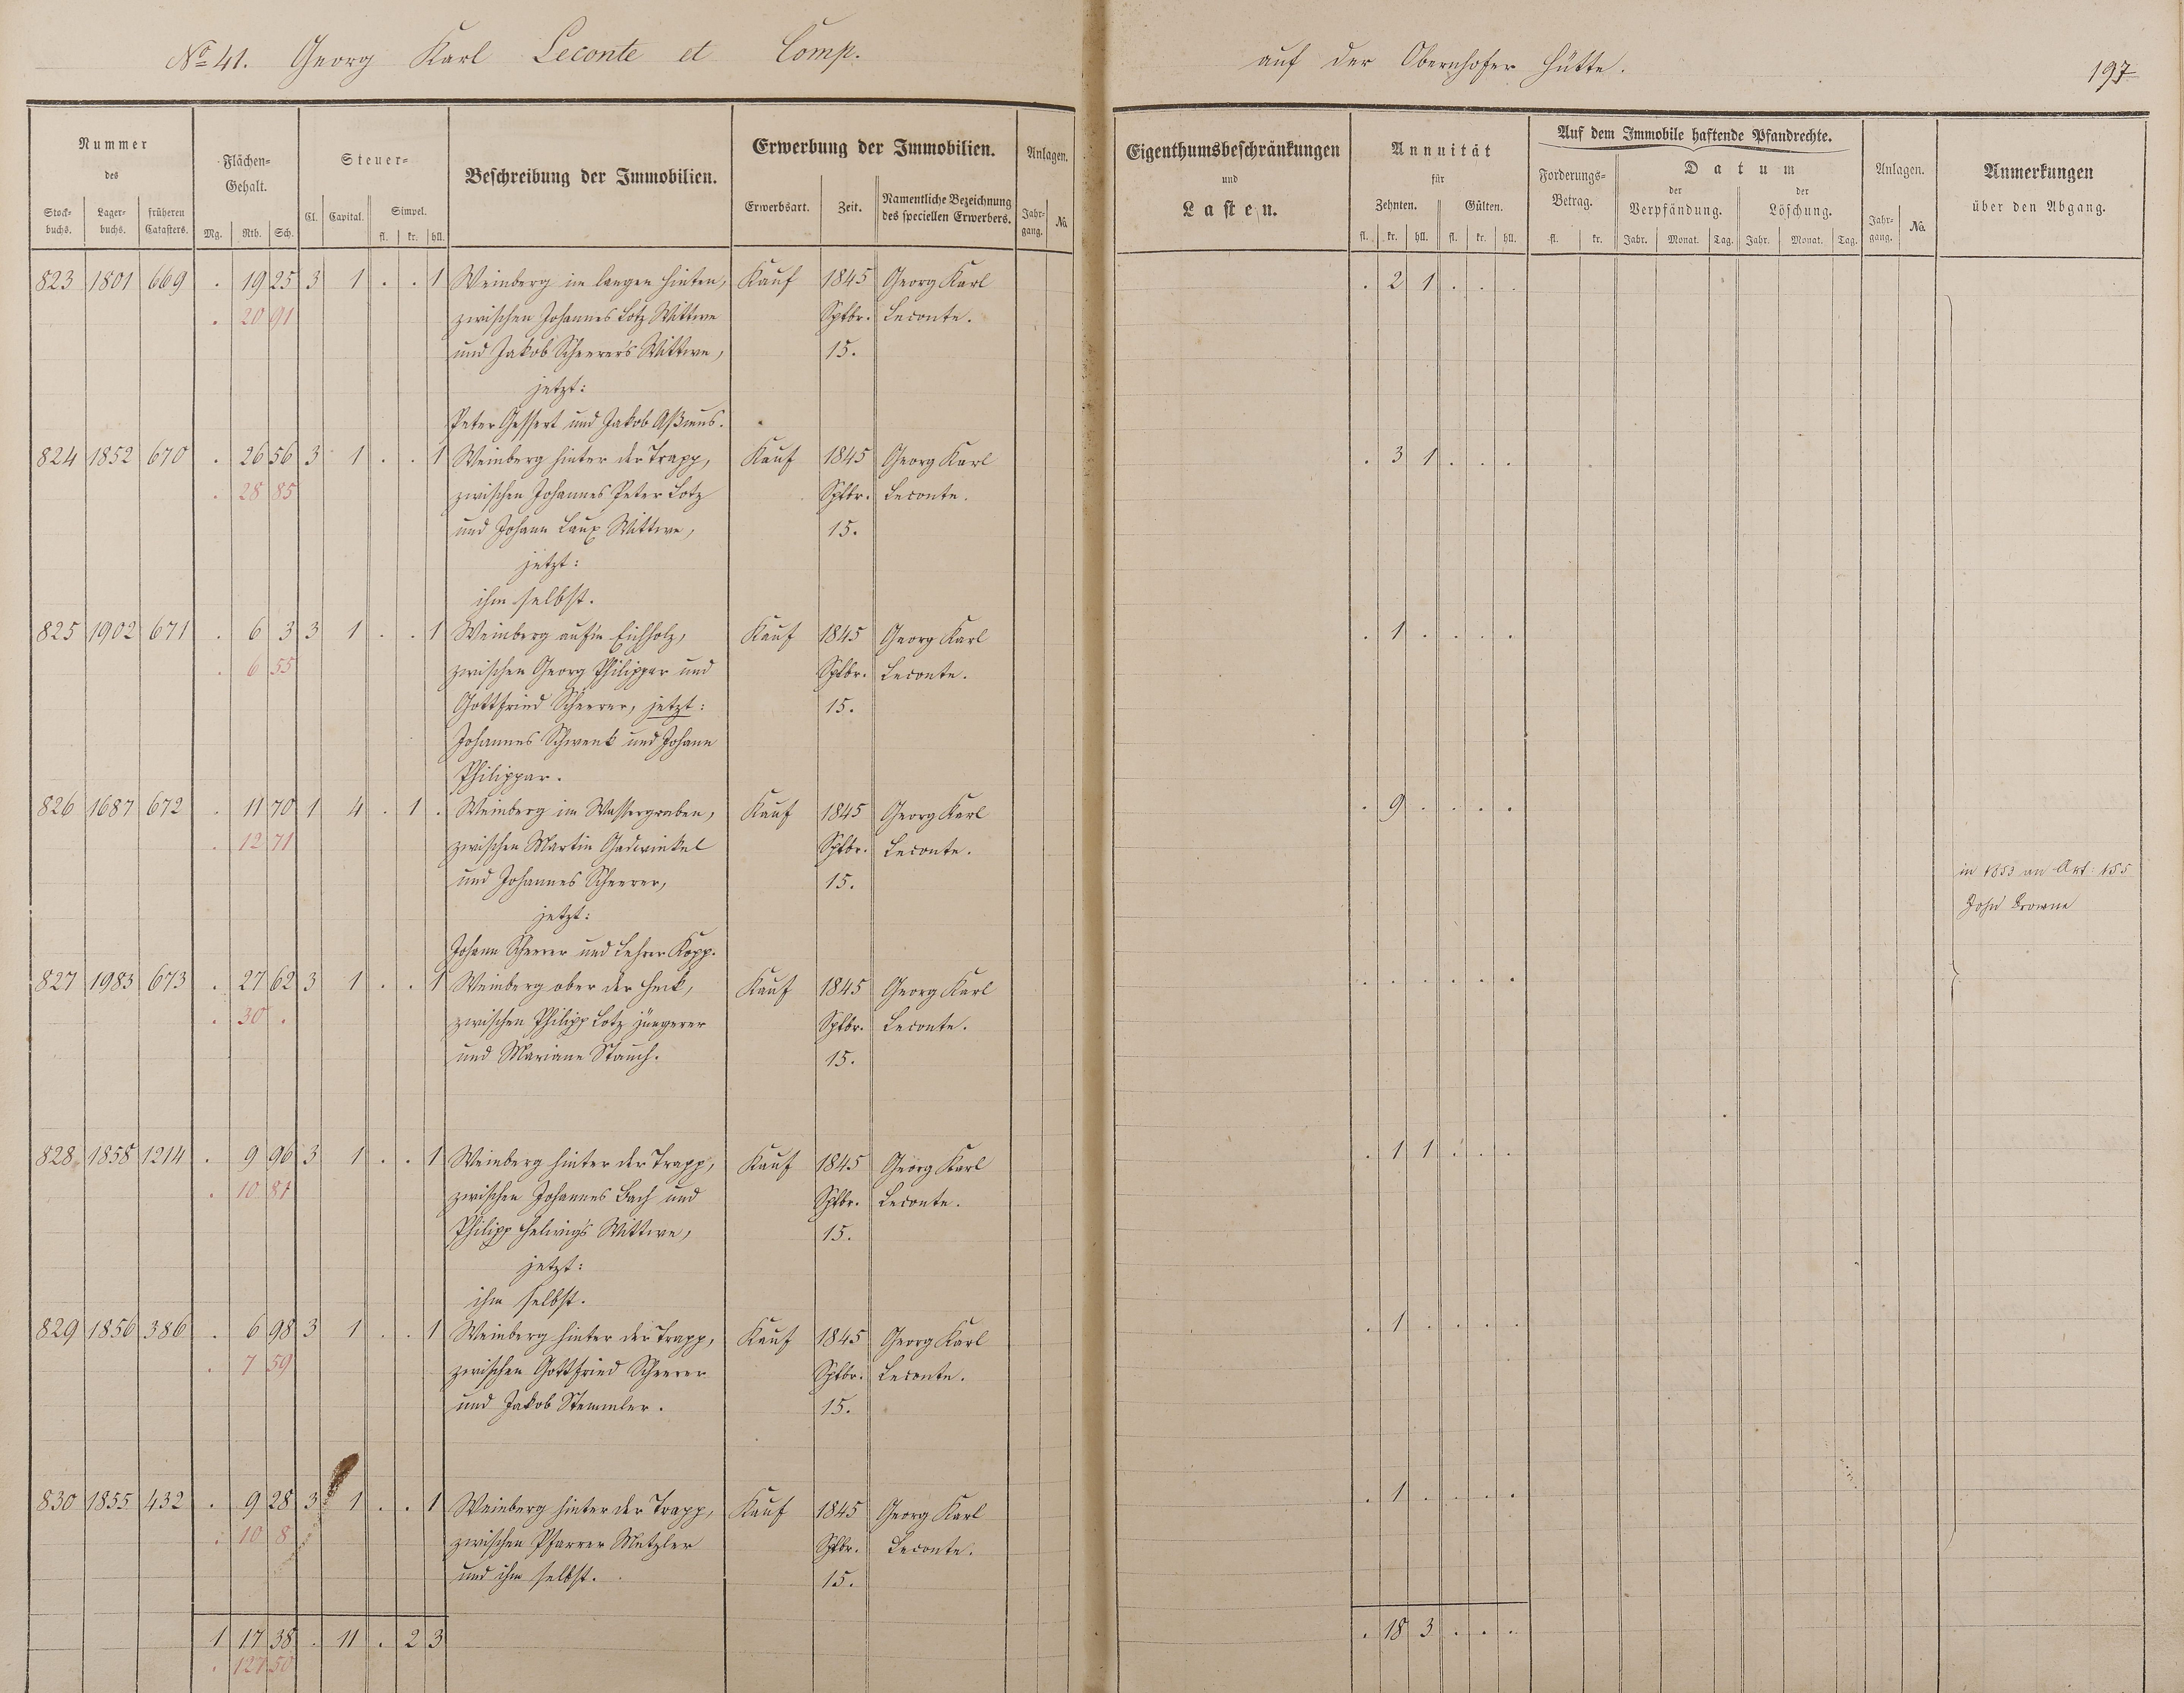 No 41. Georg Karl Leconte et Comp. auf der Obernhofer Hütte. 197
Nummer des
Stock-buchs. Lager-buchs. früheren Catasters.
Flächen-Gehalt.
Mg. Rth. Sch.
Steuer-
Cl. Capital. Simpel.
fl. kr. hll.
Beschreibung der Immobilien.
Erwerbung der Immobilien.
Erwerbsart. Zeit. Namentliche Bezeichnung des speciellen Erwerbers.
Anlagen.
Jahr-gang. No.
Eigenthumsbeschränkungen
und
Lasten.
Annuität
für
Zehnten. Gülten.
fl. kr. hll. fl. kr. hll.
Auf dem Immobile haftende Pfandrechte.
Forderungs-Betrag.
fl. kr.
Datum
der Verpfändung. der Löschung.
Jahr. Monat. Tag. Jahr. Monat. Tag.
Anlagen.
Jahr-gang. No.
Anmerkungen
über den Abgang.
823 1801 669 . 19 25 3 1 . . 1 Weinberg im langen hinten, Kauf 1845 Georg Karl . 2 1 . . .
. 20 91 zwischen Johannes Lotz Wittwe Sptbr. Leconte.
und Jakob Scheerer's Wittwe, 15.
jetzt:
Peter Gessert und Jakob Aßmus.
824 1852 670 . 26 56 3 1 . . 1 Weinberg hinter der Trapp, Kauf 1845 Georg Karl . 3 1 . . .
. 28 85 zwischen Johannes Peter Lotz Sptbr. Leconte.
und Johann Laux Wittwe, 15.
jetzt:
ihm selbst.
825 1902 671 . 6 3 3 1 . . 1 Weinberg auf'm Eichholz, Kauf 1845 Georg Karl . 1 . . . .
. 6 55 zwischen Georg Philippar und Sptbr. Leconte.
Gottfried Scheerer, jetzt: 15.
Johannes Schwenk und Johann
Philippar.
826 1687 672 . 11 70 1 4 . 1 . Weinberg im Wassergraben, Kauf 1845 Georg Karl . 9 . . . .
. 12 71 zwischen Martin Gadwinkel Sptbr. Leconte.
und Johannes Scheerer, 15.
jetzt:
Johann Scheerer und Lehrer Kopp.
in 1853 an Art: 155
John Browne
827 1983 673 . 27 62 3 1 . . 1 Weinberg ober der Heck, Kauf 1845 Georg Karl . . . . . .
. 30 . zwischen Philipp Lotz jüngerer Sptbr. Leconte.
und Mariane Stauch. 15.
828 1858 1214 . 9 96 3 1 . . 1 Weinberg hinter der Trapp, Kauf 1845 Georg Karl . 1 1 . . .
. 10 81 zwischen Johannes Bach und Sptbr. Leconte.
Philipp Helwig's Wittwe, 15.
jetzt:
ihm selbst.
829 1856 386 . 6 98 3 1 . . 1 Weinberg hinter der Trapp, Kauf 1845 Georg Karl . 1 . . . .
. 7 59 zwischen Gottfried Scheerer Sptbr. Leconte.
und Jakob Stemmler. 15.
830 1855 432 . 9 28 3 1 . . 1 Weinberg hinter der Trapp, Kauf 1845 Georg Karl . 1 . . . .
. 10 8 zwischen Pfarrer Metzler Sptbr. Leconte.
und ihm selbst. 15.
1 17 38 . 11 . 2 3 . 18 3 . . .
. 127 50